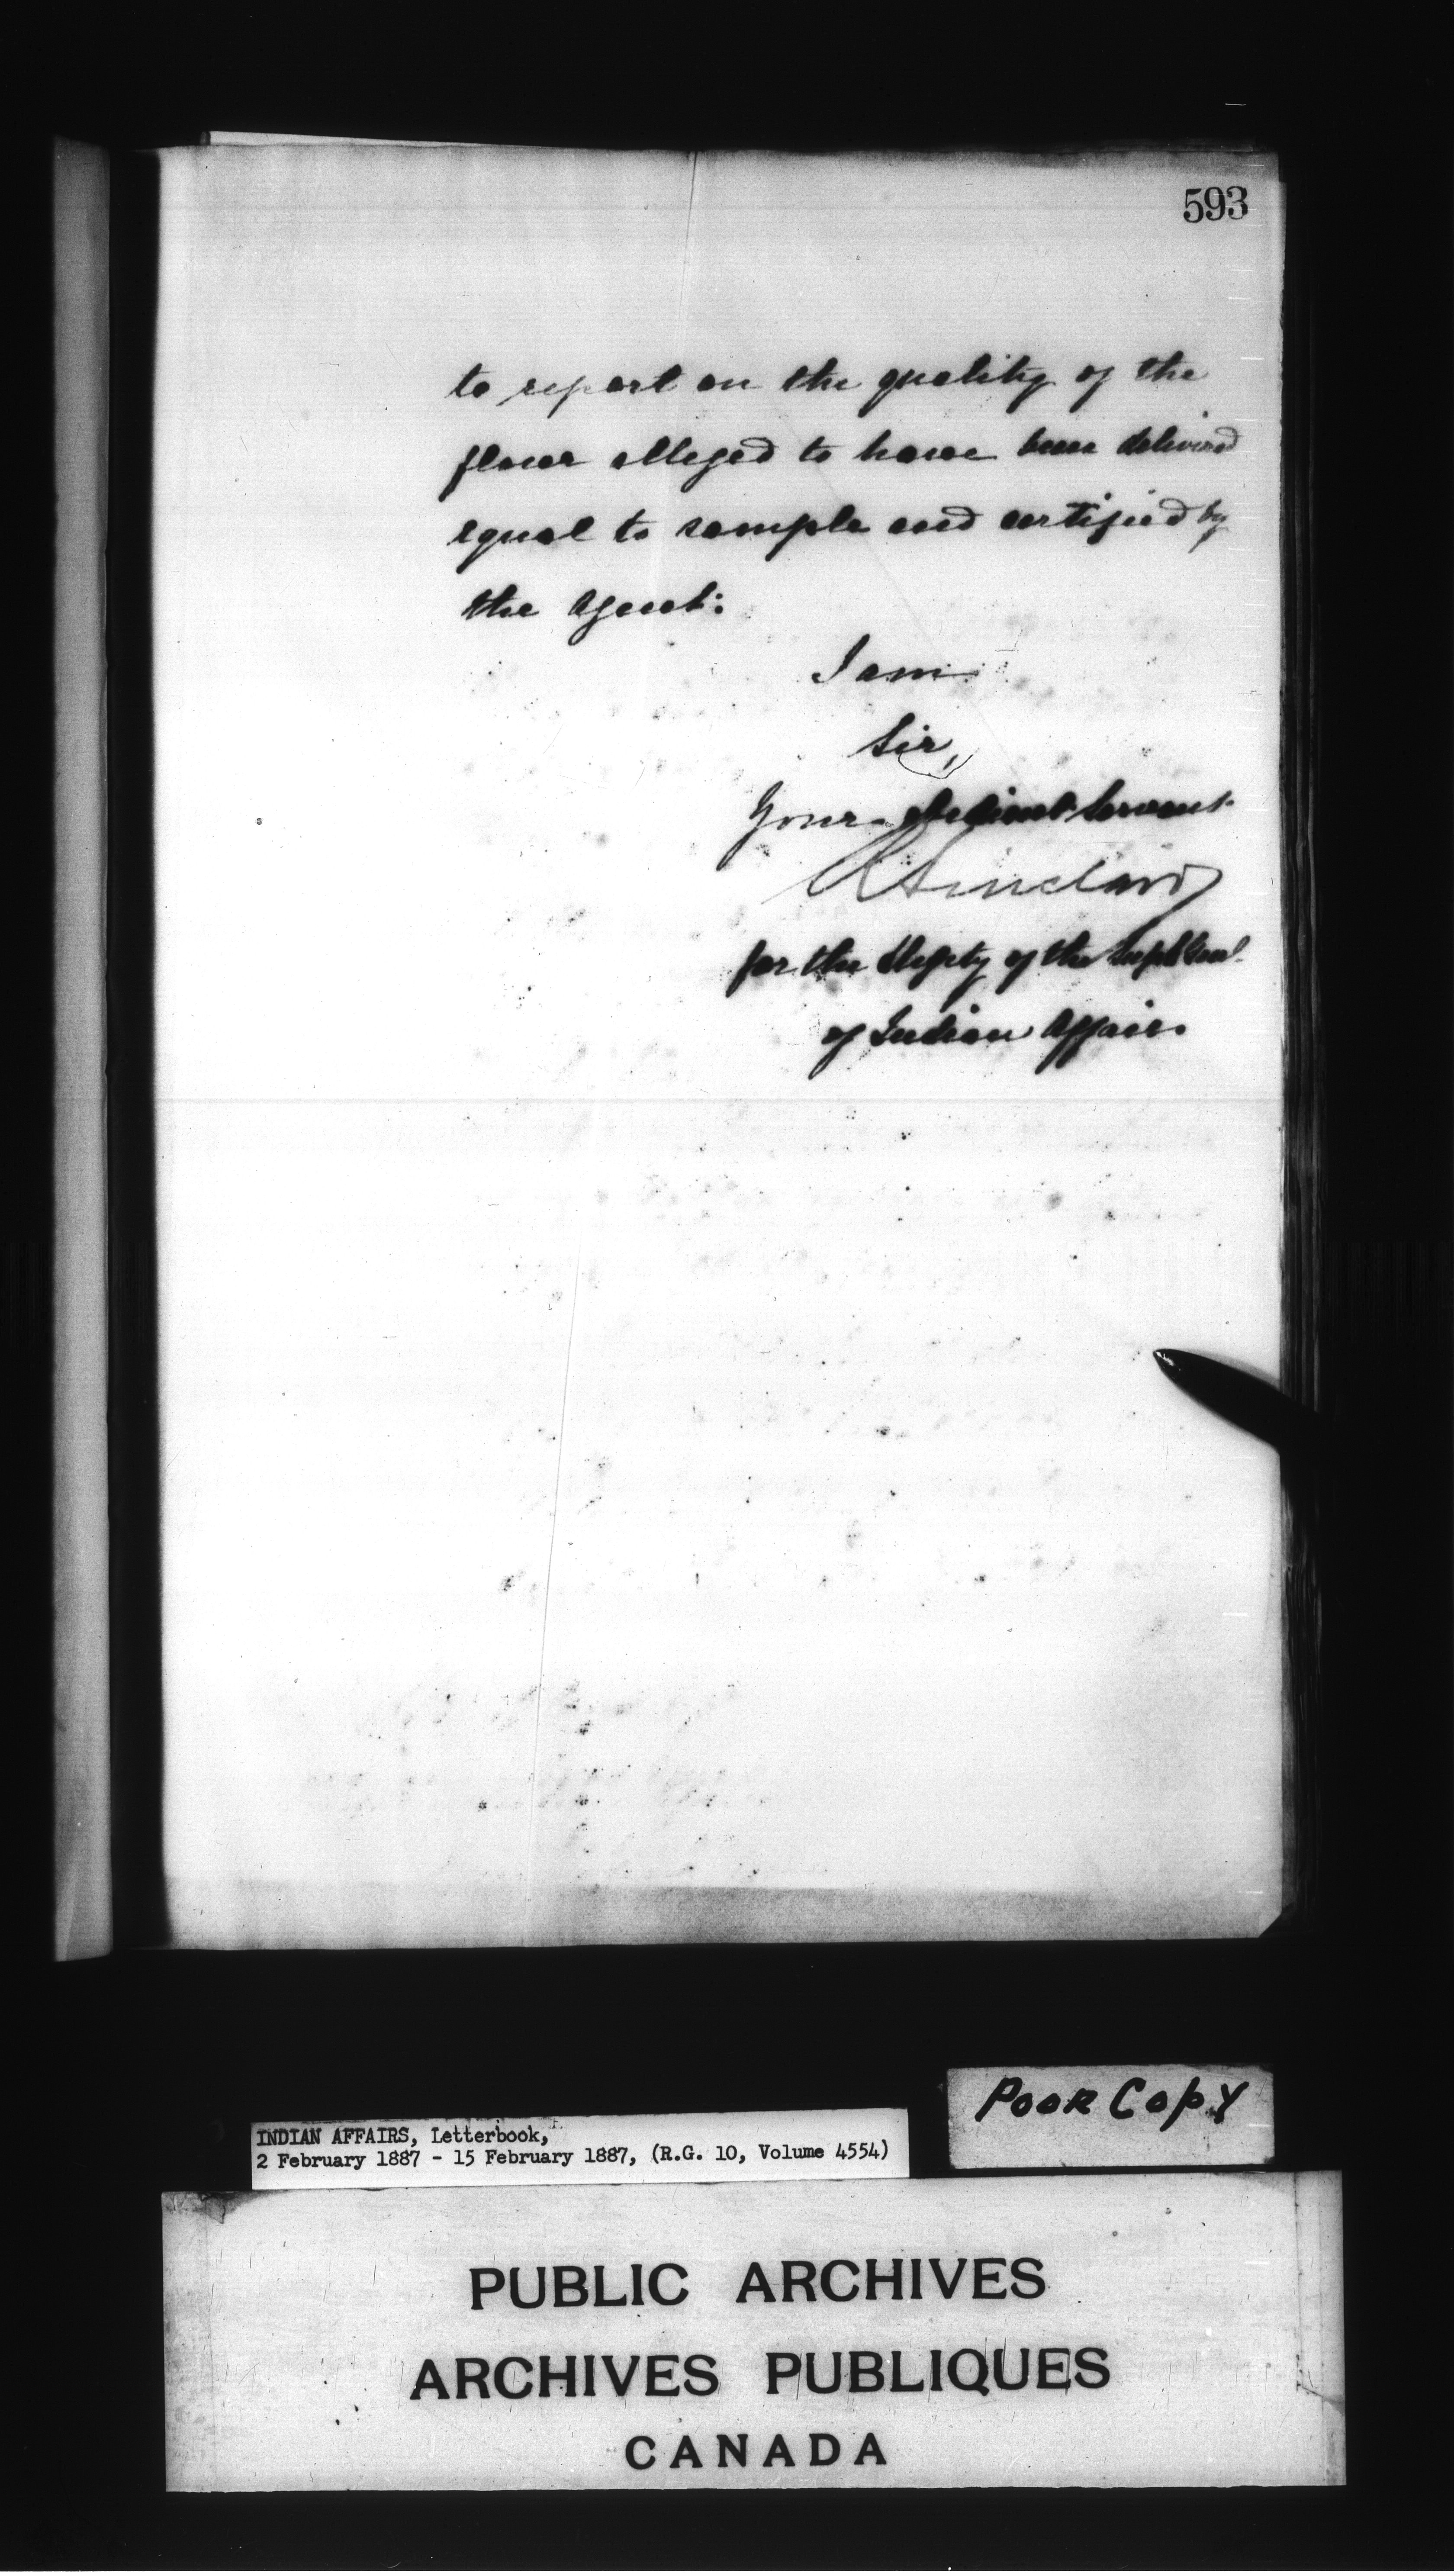 593
to report on the quality of the
flour alleged to have been delivered
equal to sample and certified by
the Agent:
I am
Sir,
Your obedient Servant
R Sinclair
for the Deputy of the Supt Genl.
of Indian Affairs
POOR COPY
INDIAN AFFAIRS, Letterbook,
2 February 1887 - 15 February 1887, (R.G. 10, Volume 4554)
PUBLIC ARCHIVES
ARCHIVES PUBLIQUES
CANADA